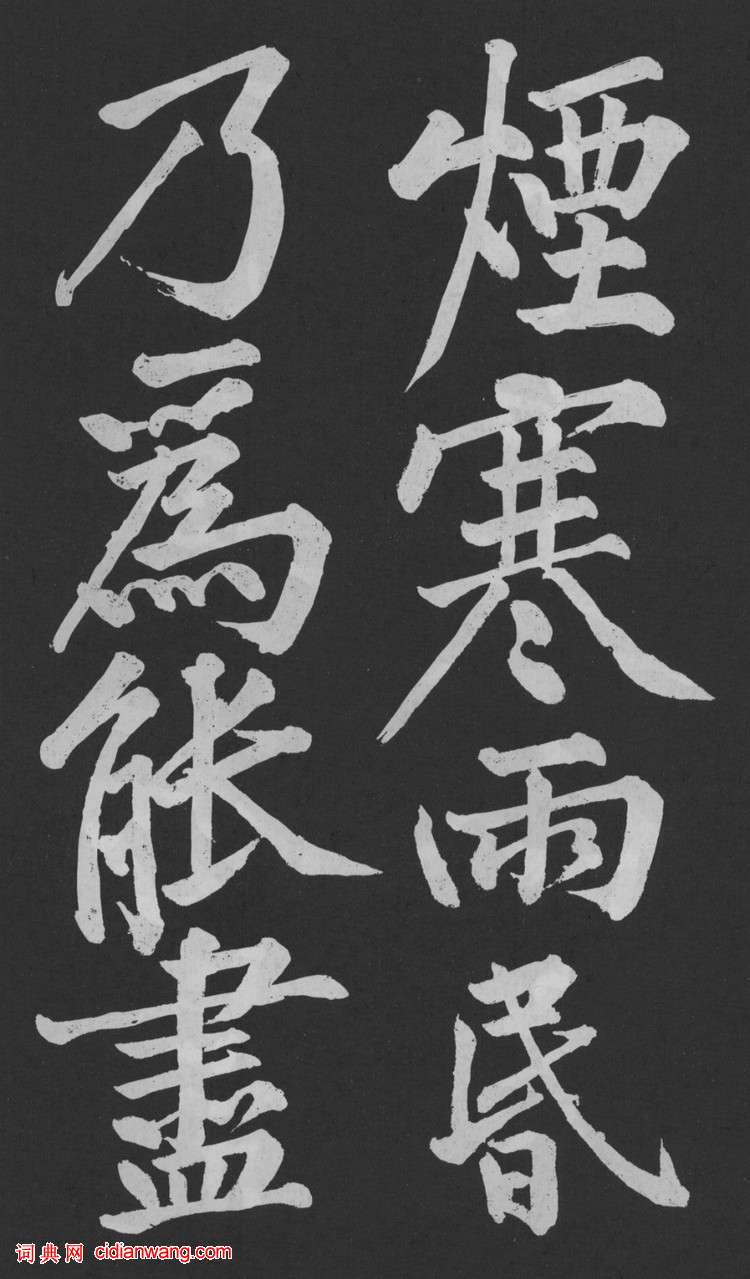 煙寒雨昏
乃爲能盡
词典网 cidianwang.com